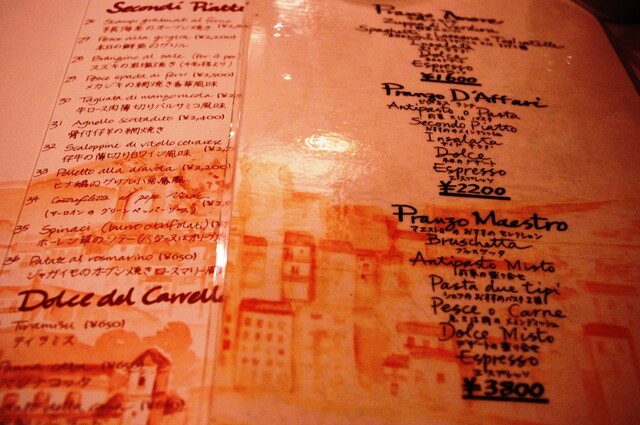 Secondi Piatti
26 Scampi gratinati al forno
手長海老のオーブン焼き
27 Pesce alla griglia (¥2,200)
本日の鮮魚のグリル
28 Brangino al sale (for 4 per)
スズキの岩塩焼き
29 Pesce spada ai ferri (¥2,500)
メカジキの網焼き香草風味
30 Tagliata di manzo
牛ロース肉薄切りバルサミコ風味
31 Agnello scottadito (¥2,400)
骨付仔羊の網焼き
32 Scaloppine di vitello
仔牛の薄切り白ワイン風味
33 Polletto alla diavola (¥2,200)
ヒナ鶏のグリル
34 al pepe Verde
(サーロインのグリーンペッパーソース)
35 Spinaci (burro
ホーレン草のソテー(バター又はオリーブ
36 Patate al rosmarino (¥650)
ジャガイモのオーブン焼きローズマリー風
Dolce del Carrell
Tiramisu (¥650)
ティラミス
Panna cotta (¥650)
パンナコッタ
della casa (¥650)
Pranzo Amore
Zuppa o Verdura
Spaghetti o Tagliatelle
Dolce
Espresso
¥1600
Pranzo D'Affari
Antipasto o Pasta
Secondo Piatto
Insalata
Dolce
Espresso
エスプレッソ
¥2200
Pranzo Maestro
マエストロのおすすめセレクション
Bruschetta
ブルスケッタ
Antipasto Misto
前菜の盛り合せ
Pasta due tipi
シェフのおすすめパスタ2種
Pesce o Carne
Dolce Misto
デザートの盛り合せ
Espresso
エスプレッソ
¥3800